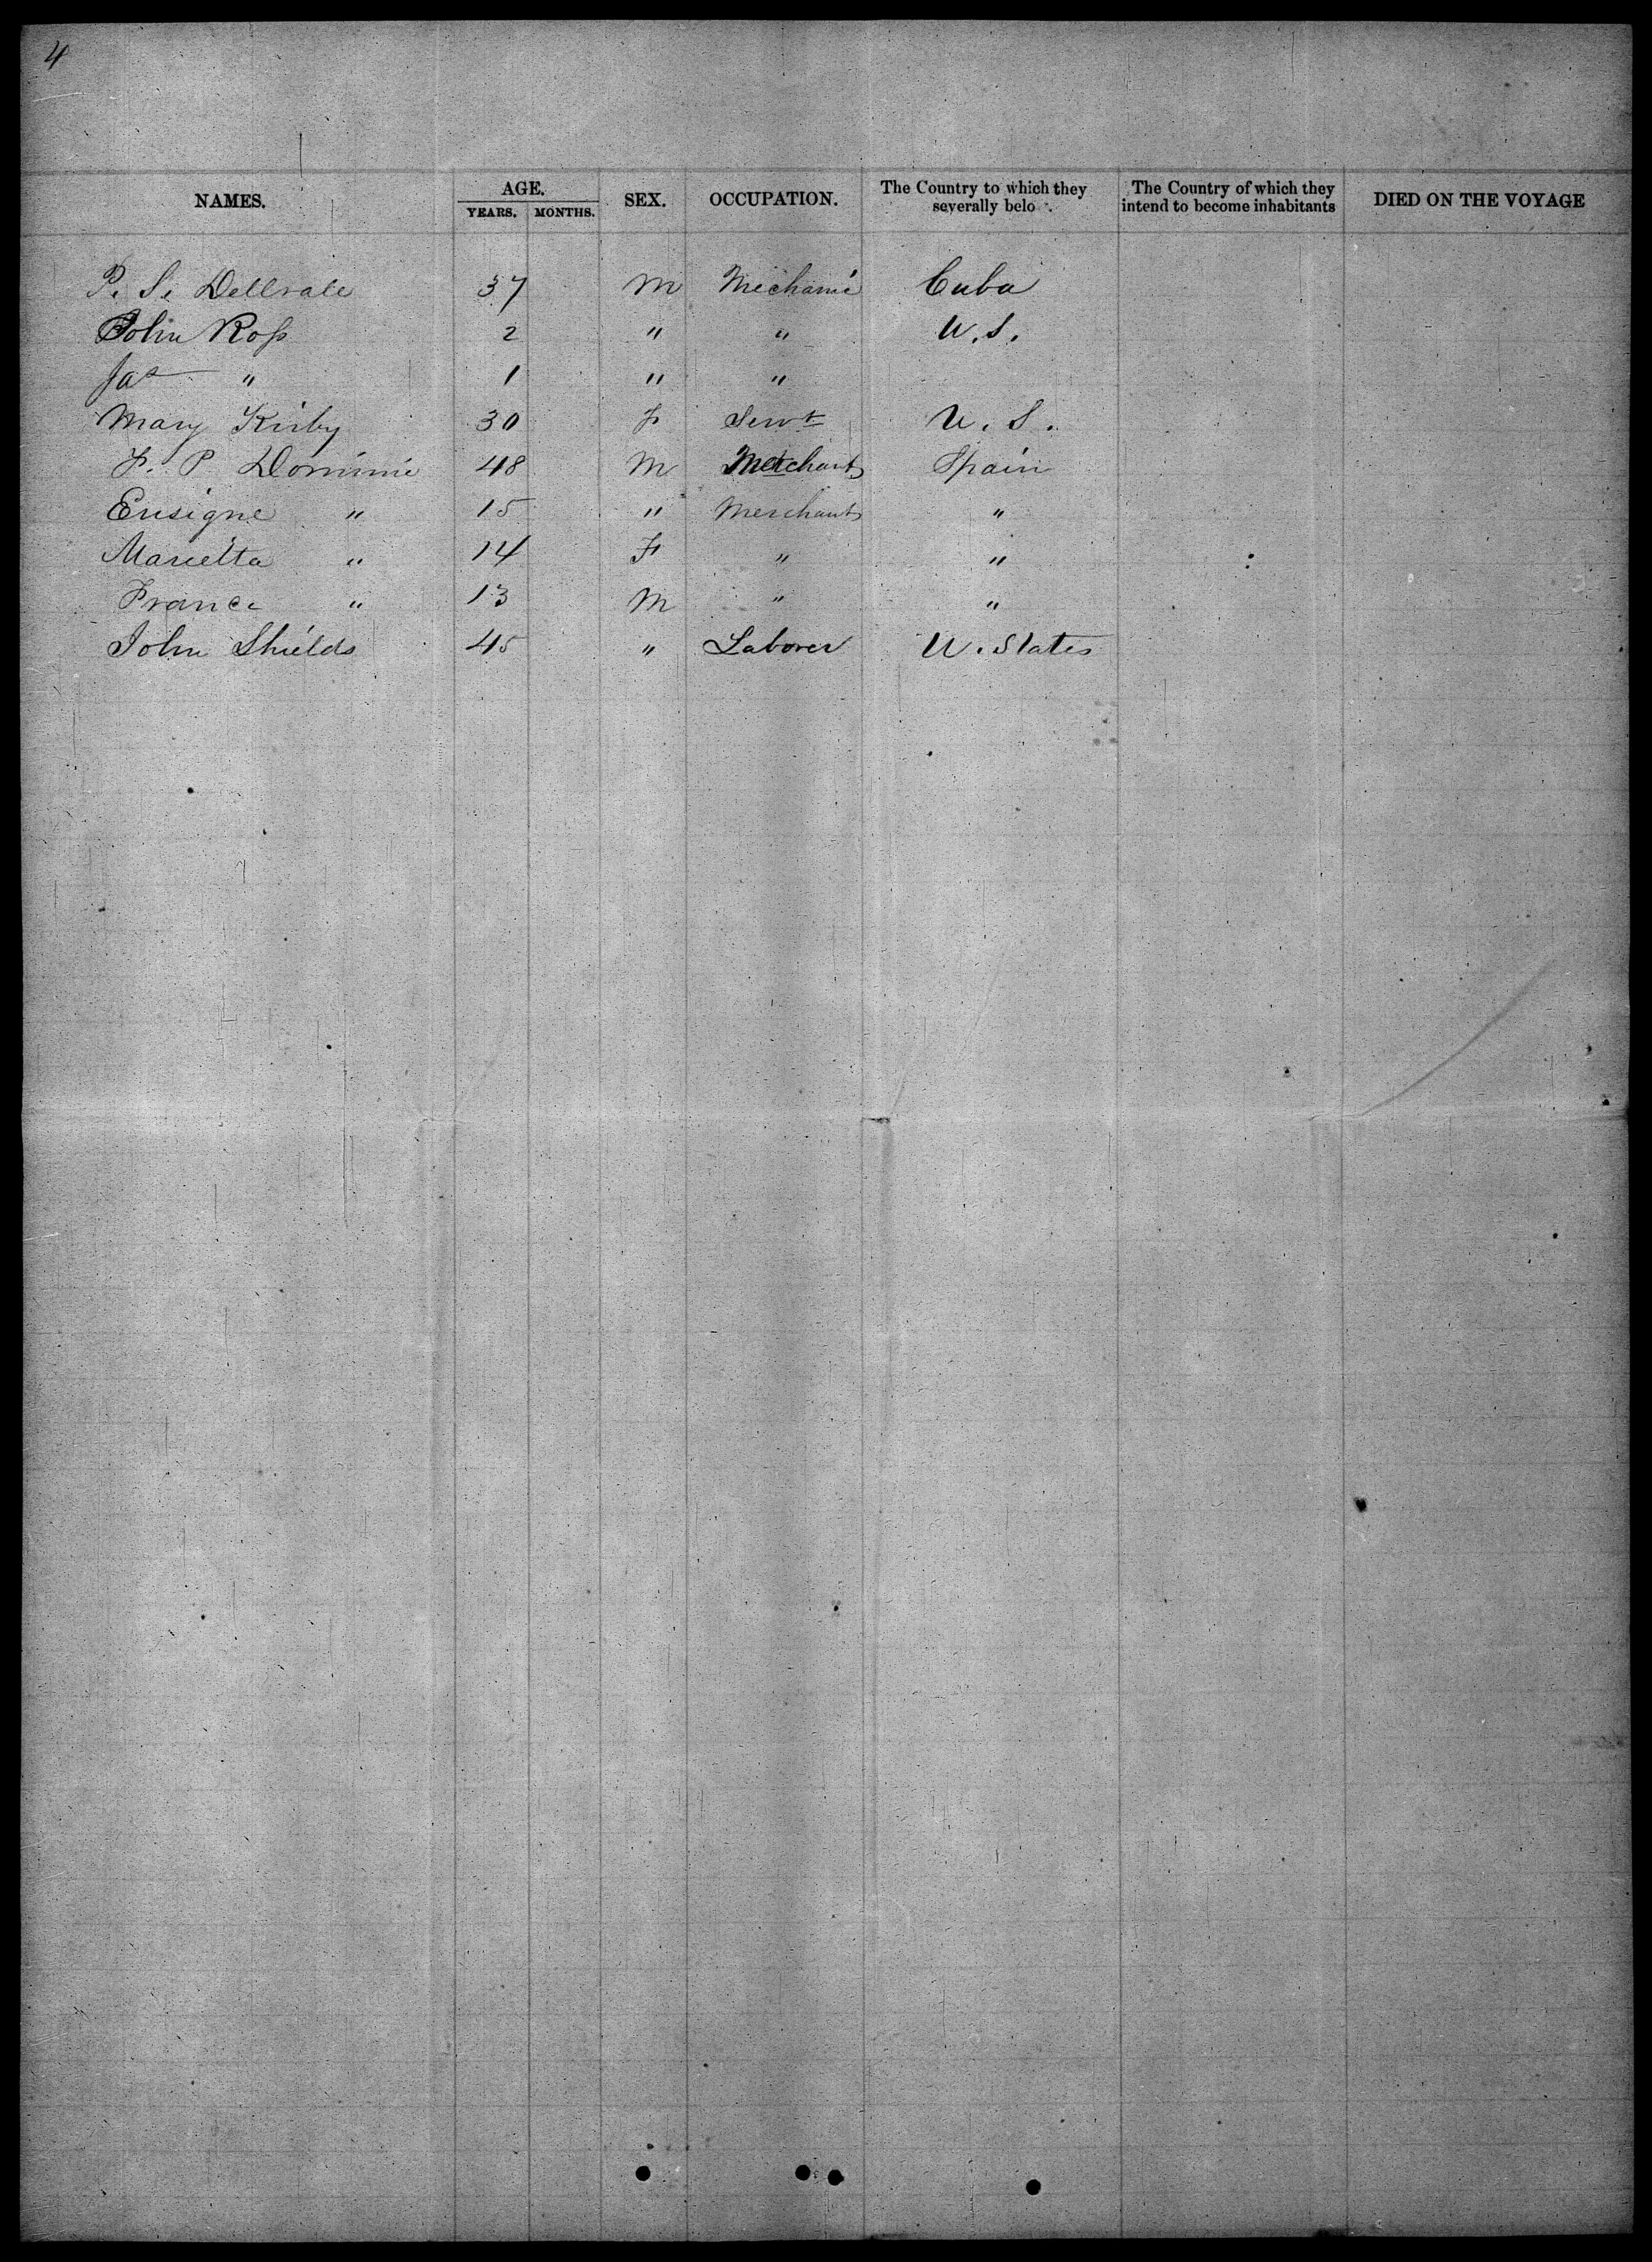 4
NAMES. AGE. YEARS. MONTHS. SEX. OCCUPATION. The Country to which they severally belo . The Country of which they intend to become inhabitants DIED ON THE VOYAGE
P. S. Dellvale 37 M Mechanic Cuba
John Ross 2 " " U.S.
Jas " 1 " "
Mary Kirby 30 F Servt U. S.
F. P Dominic 48 M Merchant Spain
Ensigne " 15 " Merchant "
Marietta " 14 F " "
France " 13 M " "
John Shields 45 " Laborer U. States